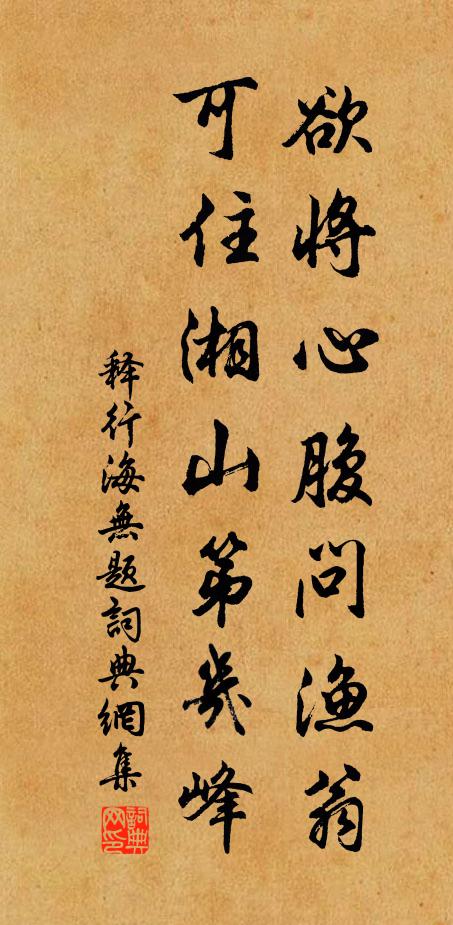 欲將心腹問漁翁
可住湘山第幾峰
釋行海無題詞典網集
詞典网印